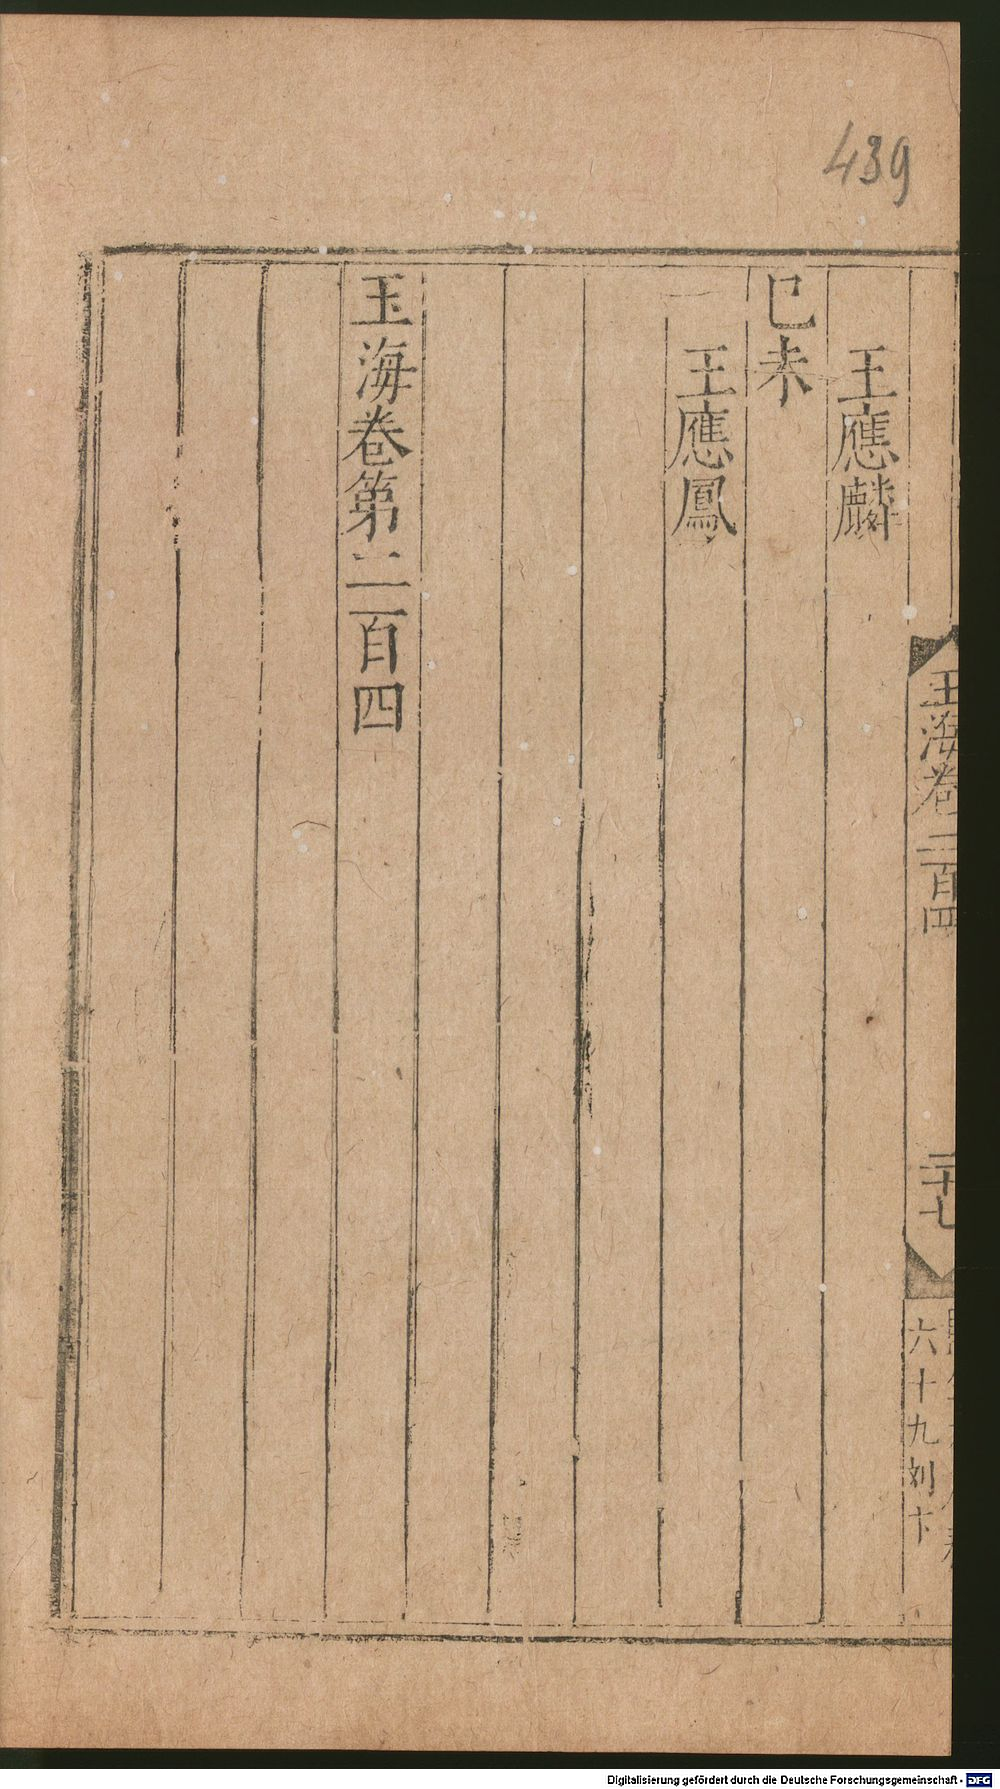 439
王應麟
已未
王應鳳
玉海卷第二百四
玉海卷二百四
二十七
六十九刘卞
Digitalisierung gefördert durch die Deutsche Forschungsgemeinschaft - DFG